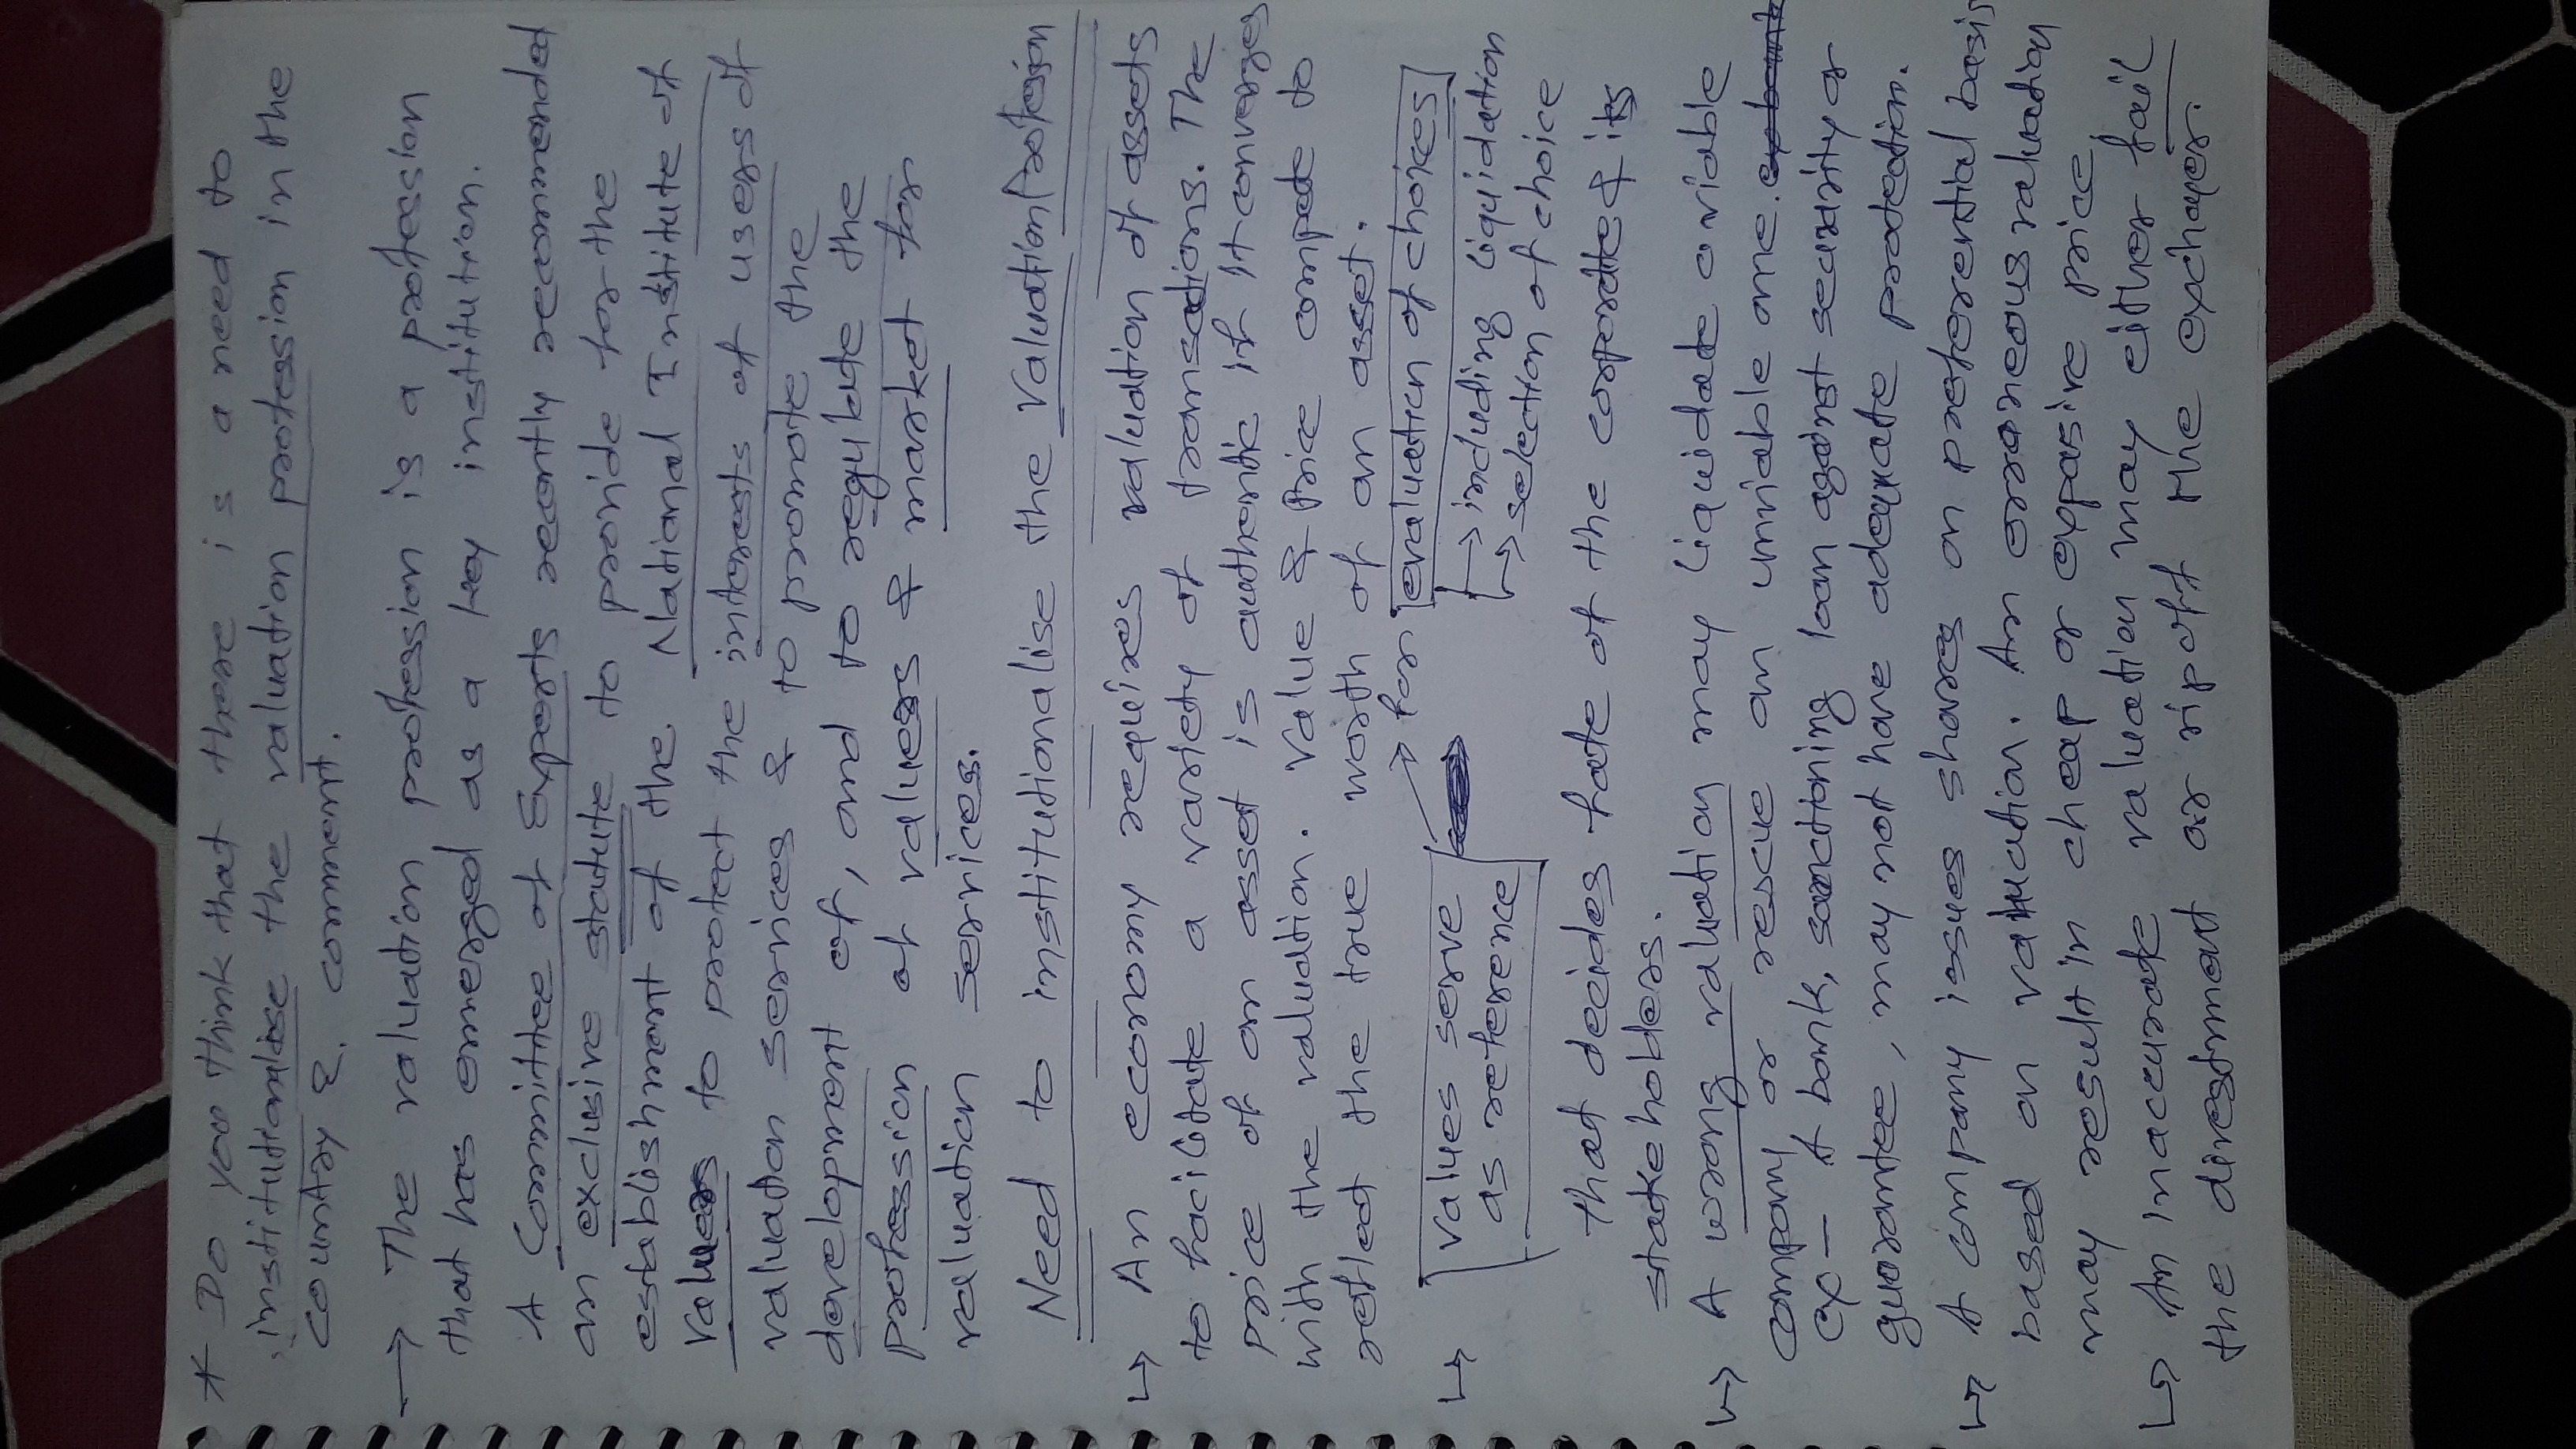 * Do you think that there is a need to
institutionalise the valuation profession in the
country & comment.
→ The valuation profession is a profession
that has emerged as a key institution.
A Committee of Experts recently recommended
an exclusive statute to provide for the
establishment of the National Institute of
Valuers to protect the interests of users of
valuation services & to promote the
development of, and to regulate the
profession of valuers & market for
valuation services.
Need to institutionalise the Valuation Profession
↳ An economy requires valuation of assets
to facilitate a variety of transactions. The
price of an asset is authentic if it converges
with the valuation. Value & Price compete to
reflect the true worth of an asset.
↳ Values serve as reference → for evaluation of choices
→ including liquidation
↳ selection of choice
that decides fate of the corporate & its
stakeholders.
↳ A wrong valuation may liquidate a viable
company or rescue an unviable one.
ex - A bank, sanctioning loan against security or
guarantee, may not have adequate protection.
↳ A company issues shares on preferential basis
based on valuation. An erroneous valuation
may result in cheap or expasive price
↳ An inaccurate valuation may either fail
the divestment or ripoff the exchequer.